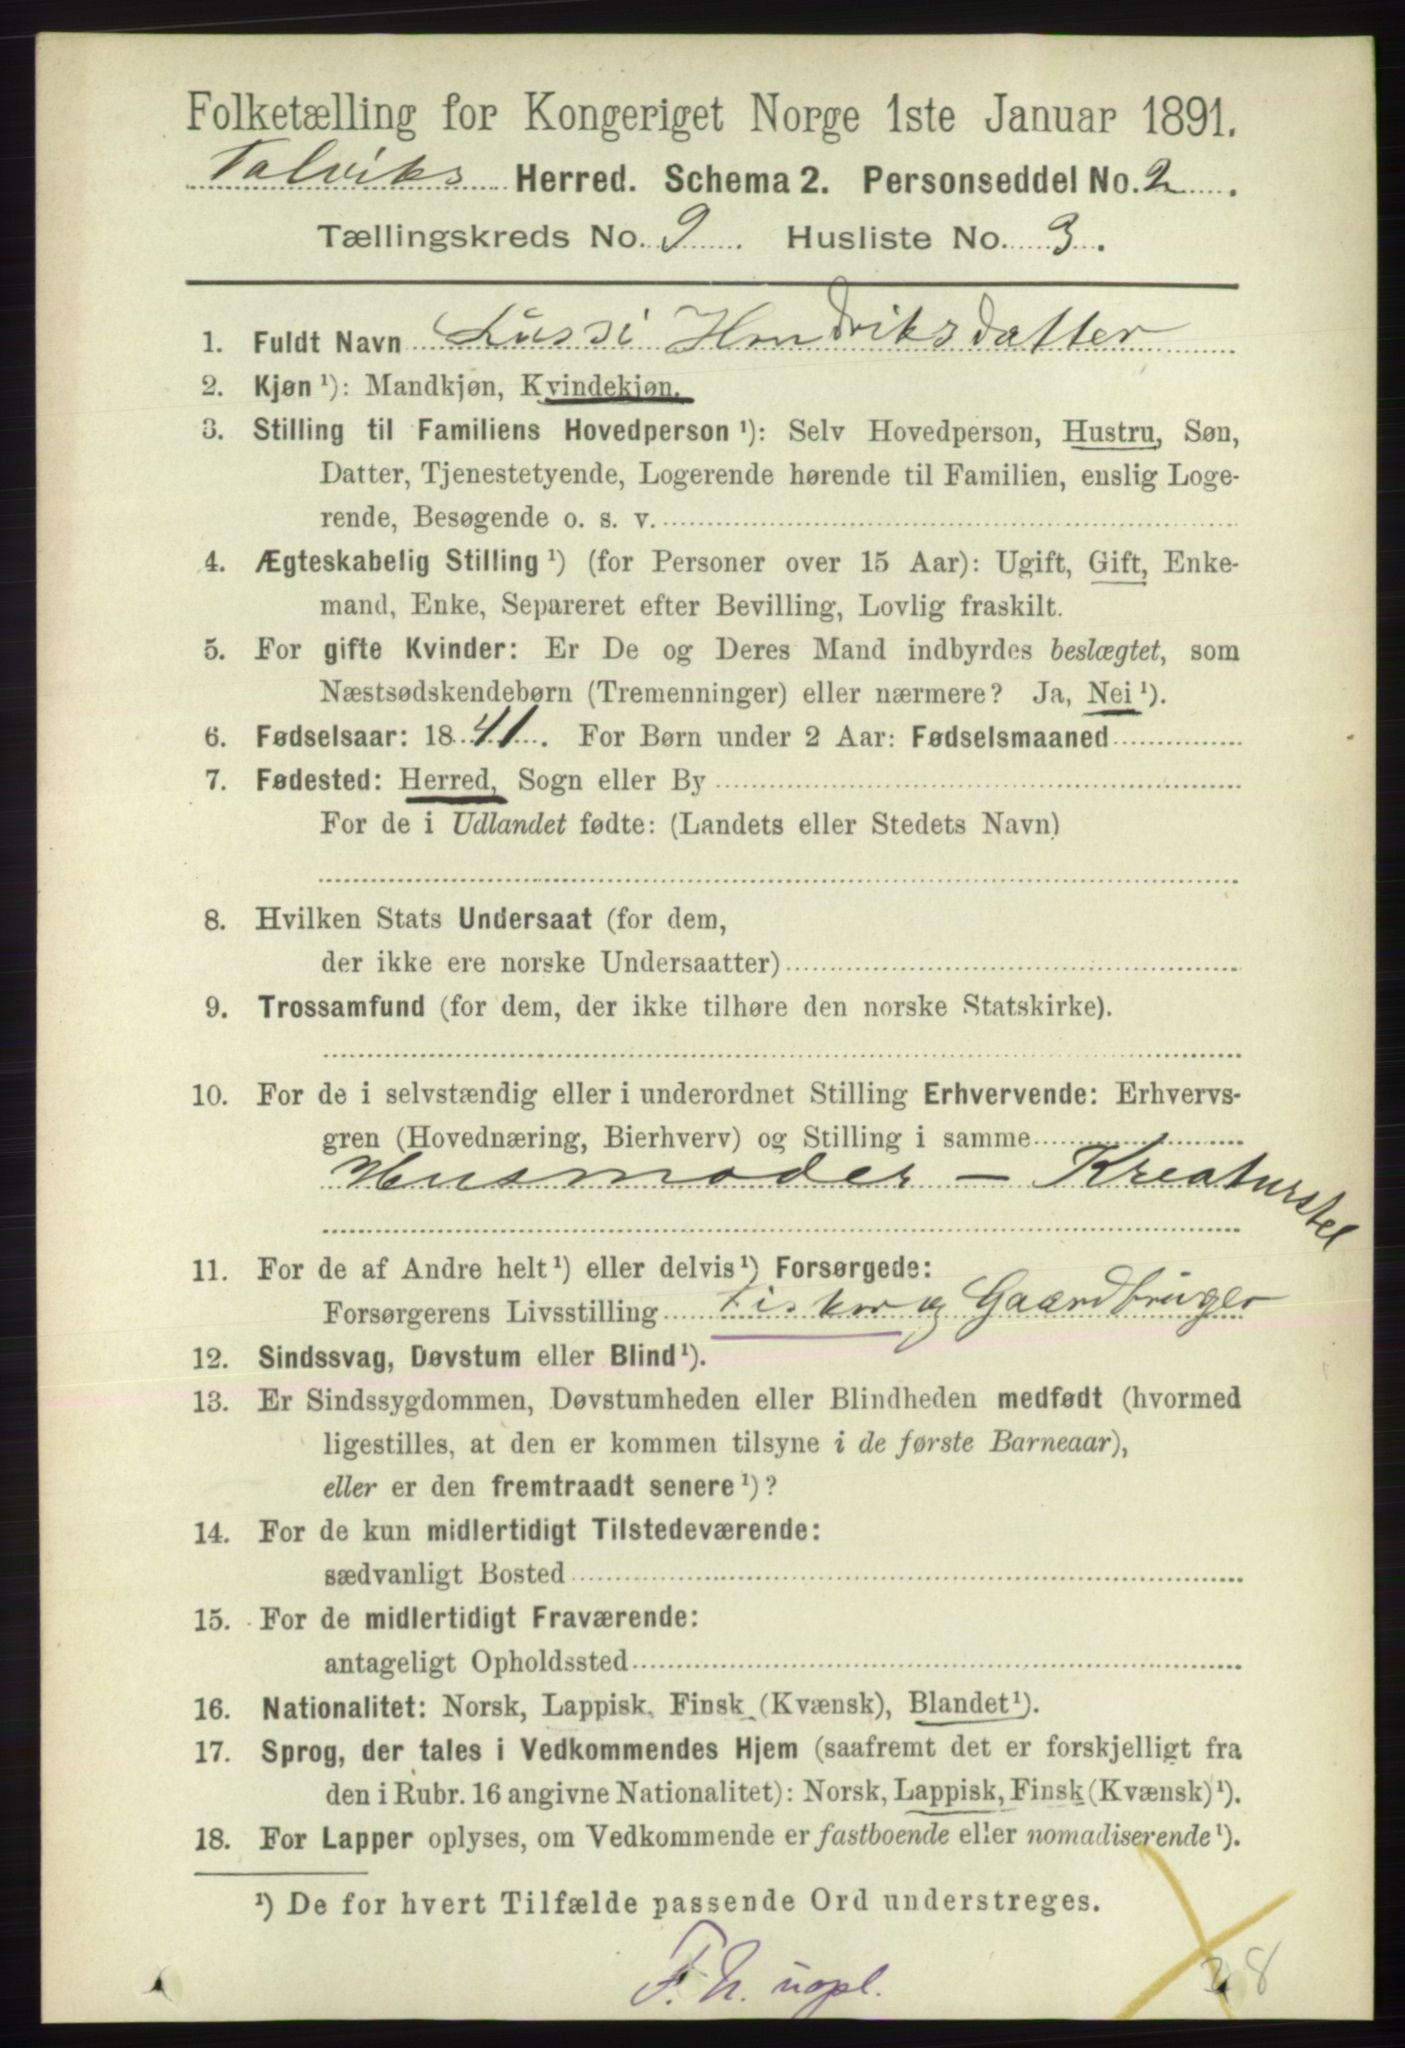 Folketælling for Kongeriget Norge 1ste Januar 1891.
Talviks Herred. Schema 2. Personseddel No. 2.
Tællingskreds No. 9. Husliste No. 3.
1. Fuldt Navn Lussi Hendriksdatter
2. Kjøn ¹): Mandkjøn, Kvindekjøn.
3. Stilling til Familiens Hovedperson ¹): Selv Hovedperson, Hustru, Søn,
Datter, Tjenestetyende, Logerende hørende til Familien, enslig Loge-
rende, Besøgende o. s. v.
4. Ægteskabelig Stilling ¹) (for Personer over 15 Aar): Ugift, Gift, Enke-
mand, Enke, Separeret efter Bevilling, Lovlig fraskilt.
5. For gifte Kvinder: Er De og Deres Mand indbyrdes beslægtet, som
Næstsødskendebørn (Tremenninger) eller nærmere? Ja, Nei ¹).
6. Fødselsaar: 1841. For Børn under 2 Aar: Fødselsmaaned
7. Fødested: Herred, Sogn eller By
For de i Udlandet fødte: (Landets eller Stedets Navn)
8. Hvilken Stats Undersaat (for dem,
der ikke ere norske Undersaatter)
9. Trossamfund (for dem, der ikke tilhøre den norske Statskirke).
10. For de i selvstændig eller i underordnet Stilling Erhvervende: Erhvervs-
gren (Hovednæring, Bierhverv) og Stilling i samme
Husmoder – Kreaturstel
11. For de af Andre helt ¹) eller delvis ¹) Forsørgede:
Forsørgerens Livsstilling Fisker og Gaardbruger
12. Sindssvag, Døvstum eller Blind ¹).
13. Er Sindssygdommen, Døvstumheden eller Blindheden medfødt (hvormed
ligestilles, at den er kommen tilsyne i de første Barneaar),
eller er den fremtraadt senere ¹)?
14. For de kun midlertidigt Tilstedeværende:
sædvanligt Bosted
15. For de midlertidigt Fraværende:
antageligt Opholdssted
16. Nationalitet: Norsk, Lappisk, Finsk (Kvænsk), Blandet ¹).
17. Sprog, der tales i Vedkommendes Hjem (saafremt det er forskjelligt fra
den i Rubr. 16 angivne Nationalitet): Norsk, Lappisk, Finsk (Kvænsk) ¹).
18. For Lapper oplyses, om Vedkommende er fastboende eller nomadiserende ¹).
¹) De for hvert Tilfælde passende Ord understreges.
F. N. uopl.
38